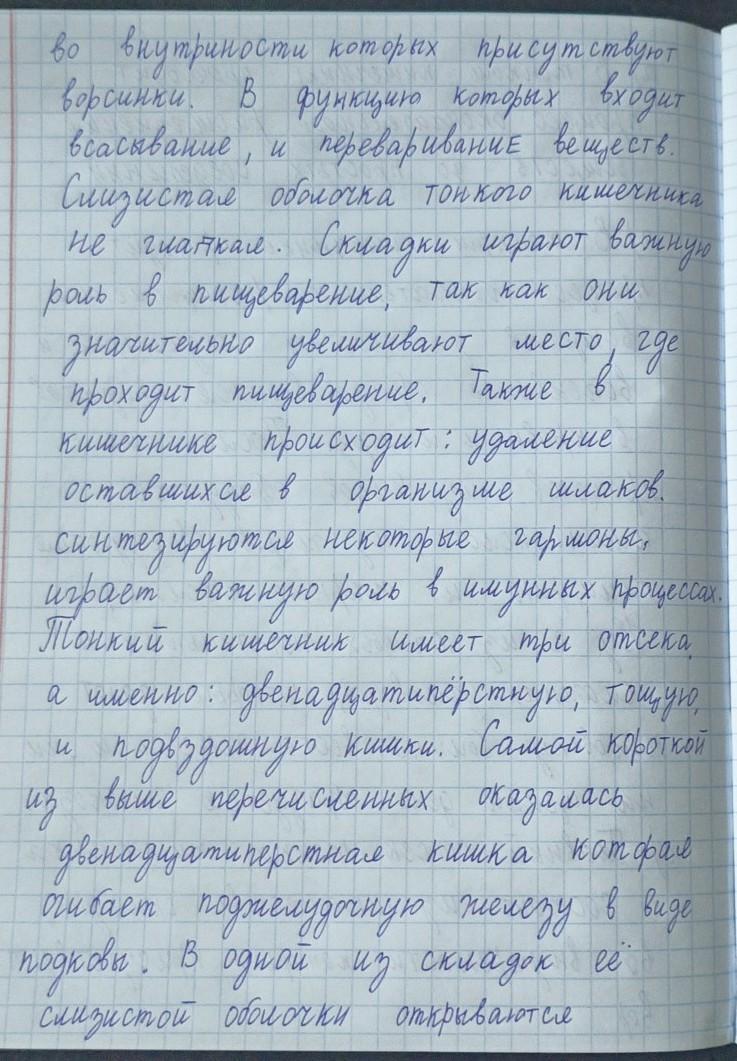 во внутриности которых присутствуют
ворсинки. В функцию которых входит
всасывание, и переваривание веществ.
Слизистая оболочка тонкого кишечника
не глаткая. Складки играют важную
роль в пищеварение, так как они
значительно увеличивают место, где
проходит пищеварение. Также в
кишечнике происходит: удаление
оставшихся в организме шлаков.
синтезируются некоторые гармоны,
играет важную роль в имунных процессах.
Тонкий кишечник имеет три отсека,
а именно: двенадцатипёрстную, тощую,
и подвздошную кишки. Самой короткой
из выше перечисленных оказалась
двенадцатиперстная кишка которая
огибает поджелудочную железу в виде
подковы. В одной из складок её
слизистой оболочки открываются